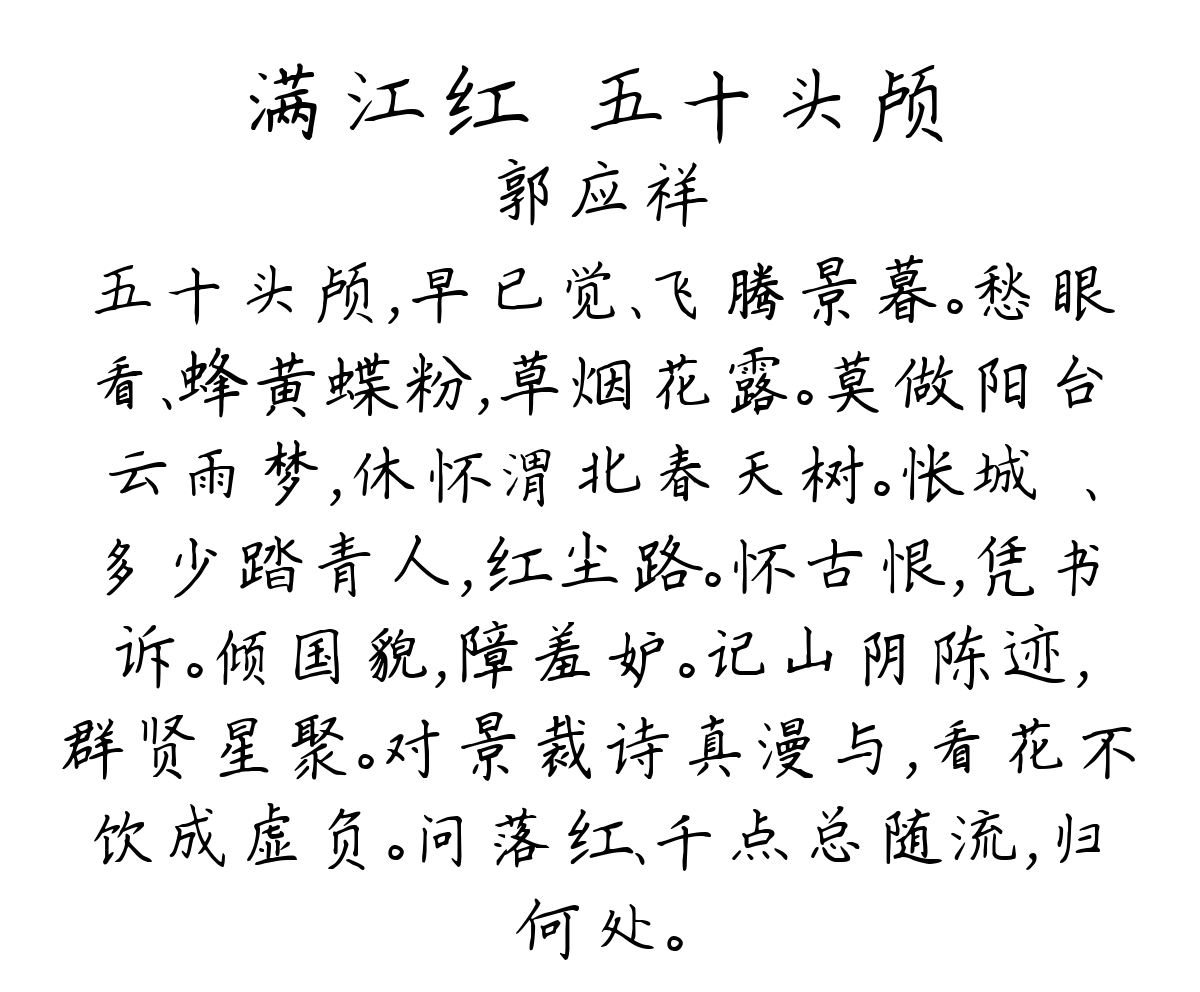 满江红 五十头颅
郭应祥
五十头颅,早已觉、飞腾景暮。愁眼
看、蜂黄蝶粉,草烟花露。莫做阳台
云雨梦,休怀渭北春天树。怅城 、
多少踏青人,红尘路。怀古恨,凭书
诉。倾国貌,障羞妒。记山阴陈迹,
群贤星聚。对景裁诗真漫与,看花不
饮成虚负。问落红、千点总随流,归
何处。